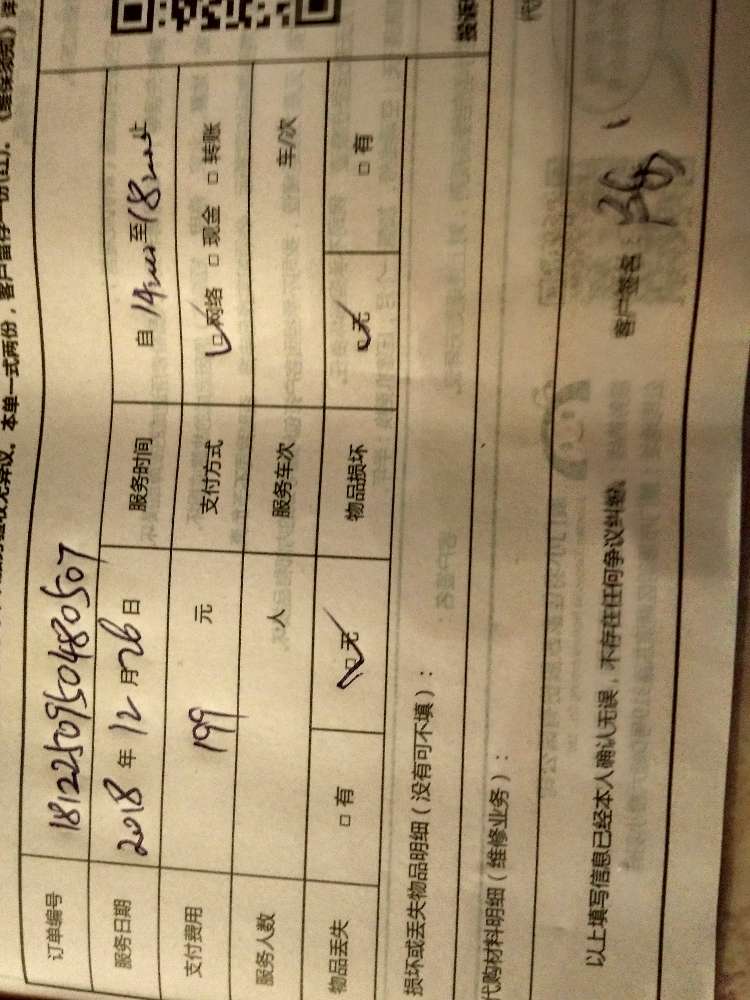 本单一式两份，客户留存一份(红)。《维保须知》详
订单编号 181225095048050​7
服务日期 2018 年 12 月 26 日 服务时间 自 14:00 至 18:00 止
支付费用 199 元 支付方式 ☑网络 □现金 □转账
服务人数 人 服务车次 车/次
物品丢失 □有 ☑无 物品损坏 ☑无 □有
损坏或丢失物品明细（没有可不填）： 投诉
代购材料明细（维修业务）： 代
以上填写信息已经本人确认无误，不存在任何争议纠纷。 客户签名：